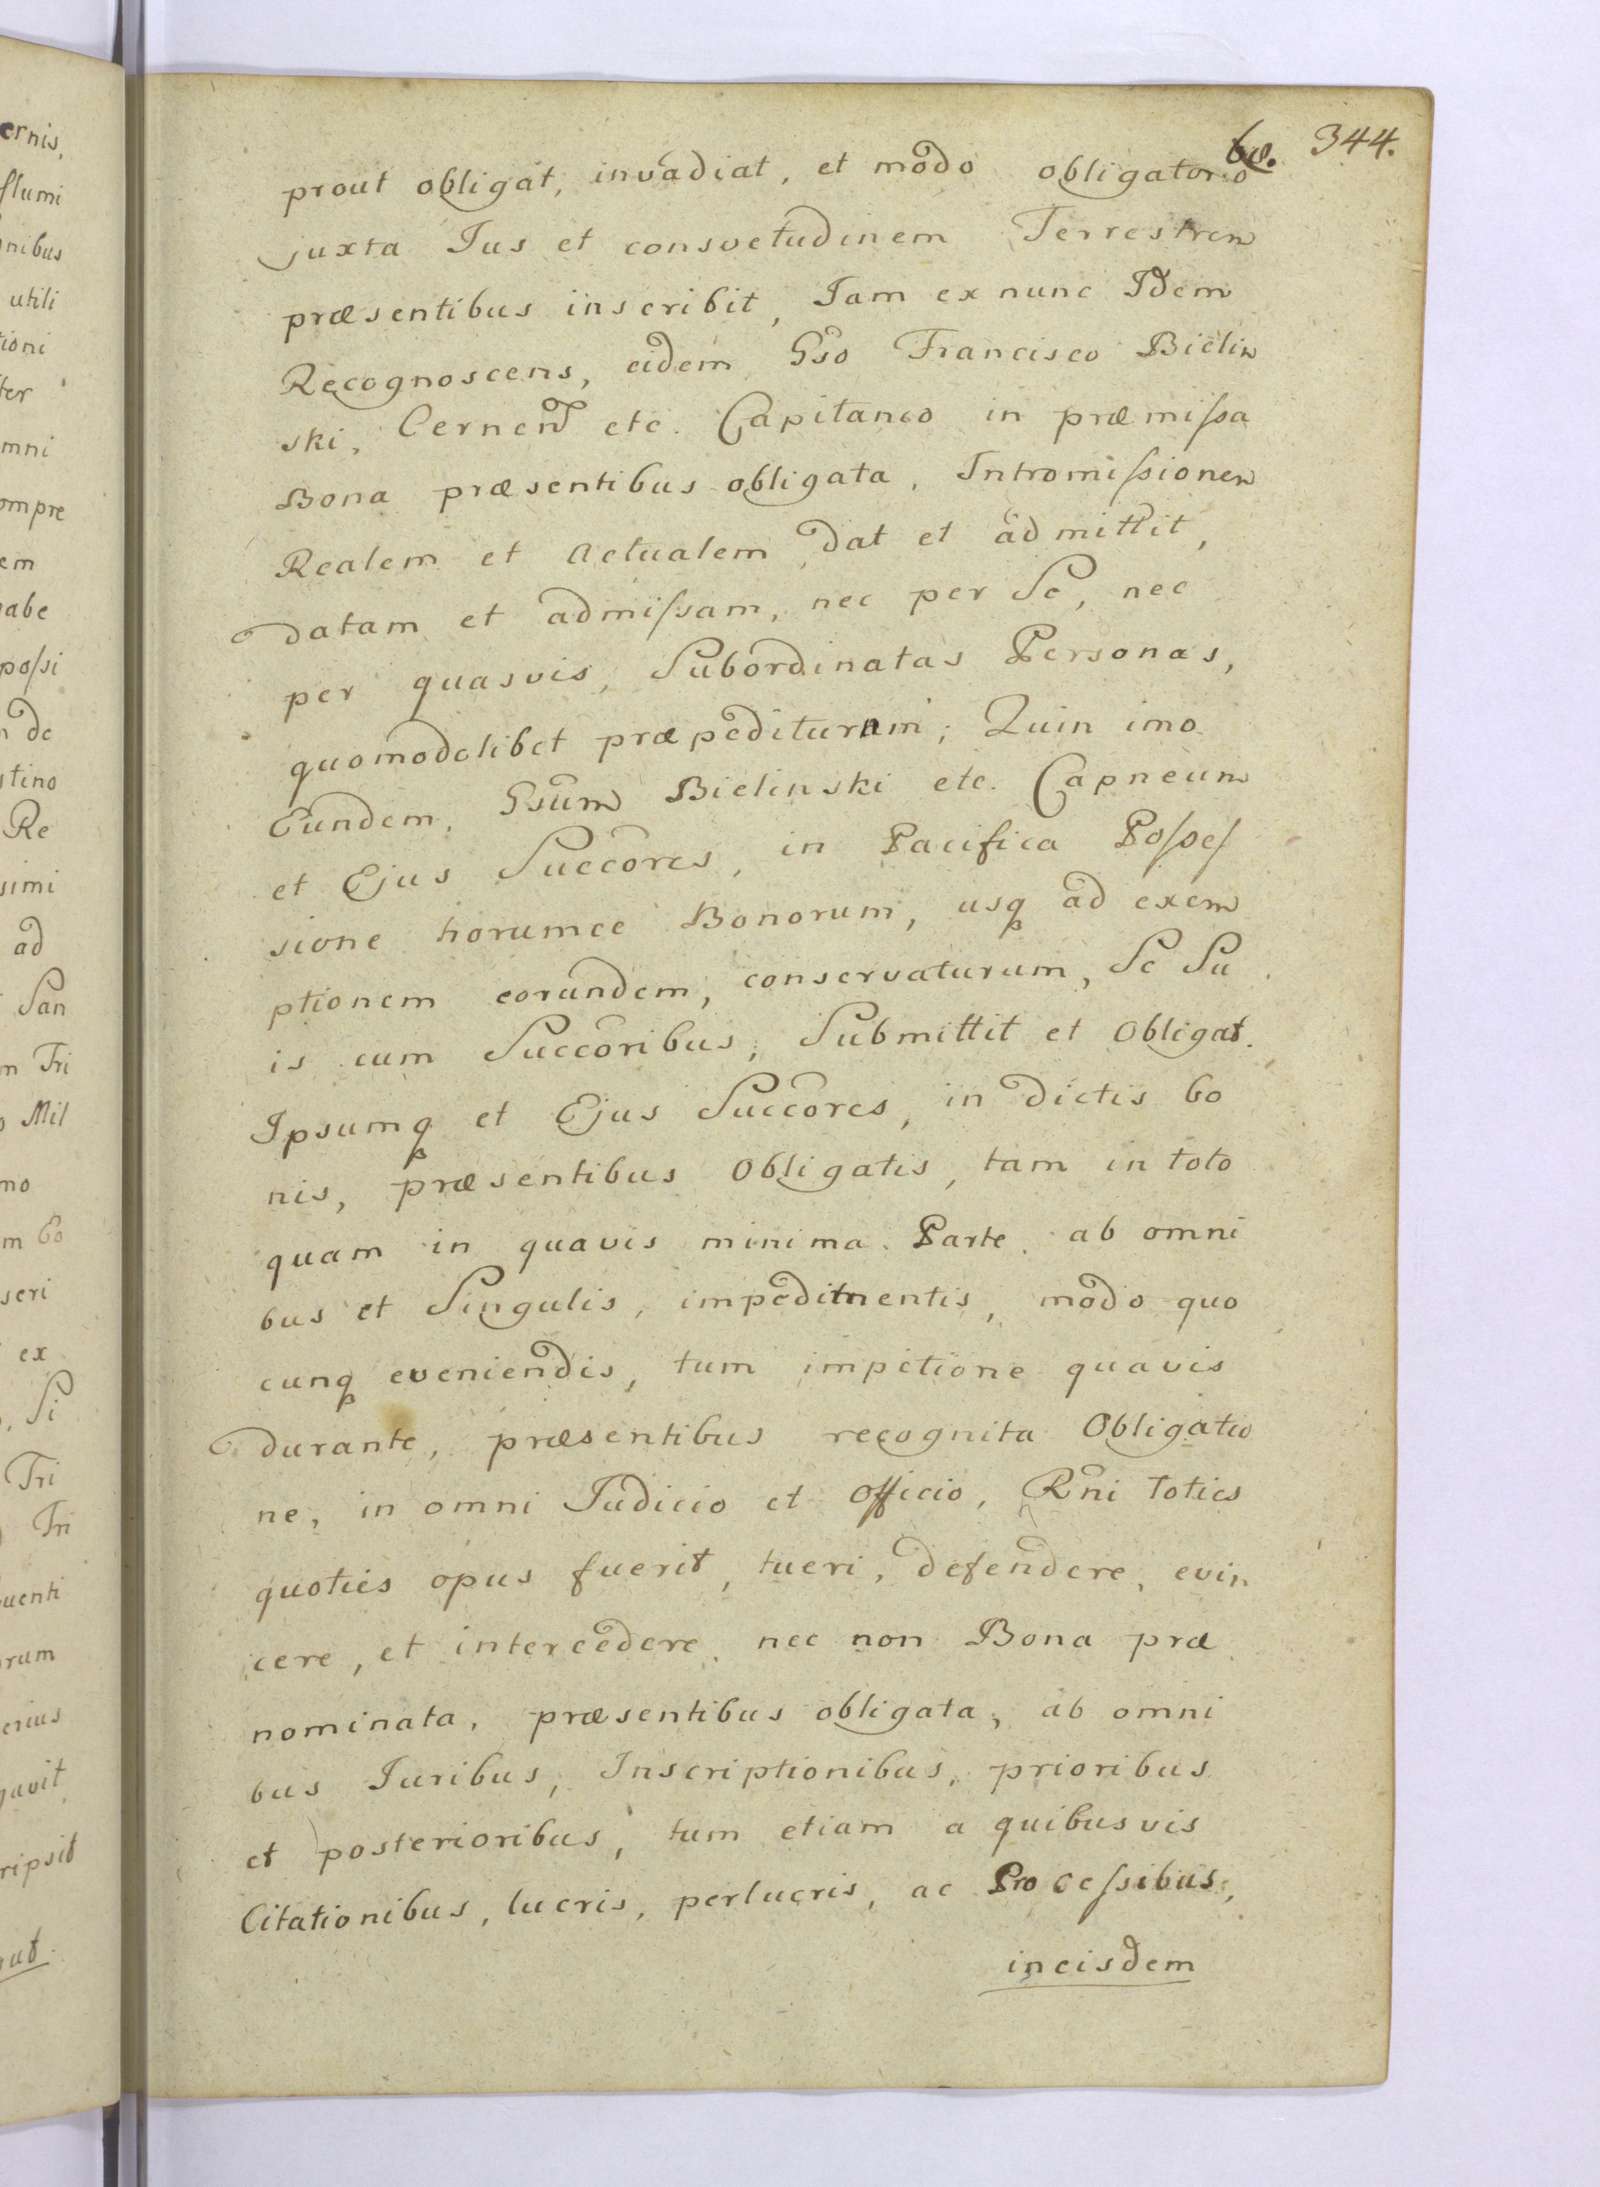 60. 344.
prout obligat, invadiat, et modo obligatorio
juxta Jus et consvetudinem Terrestrem
præsentibus inscribit, Jam ex nunc Idem
Recognoscens, eidem Gso Francisco Bielin
ski, Cernen etc. Capitaneo in præmiſsa
Bona præsentibus obligata, Intromiſsionem
Realem et Actualem dat et admittit,
datam et admiſsam, nec per Se, nec
per quasvis, Subordinatas Personas,
quomodolibet præpediturum; Quin imo
Eundem, Gsum Bielinski etc. Capneum
et Ejus Succores, in Pacifica Poſseſ
sione horumce Bonorum, usq ad exem
ptionem eorundem, conservaturum, Se Su
is cum Succoribus, Submittit et Obligat.
Ipsumq et Ejus Succores, in dictis bo
nis, præsentibus Obligatis, tam in toto
quam in quavis minima Parte, ab omni
bus et Singulis, impedimentis, modo quo
cunq eveniendis, tum impetione quavis
durante, præsentibus recognita Obligatio
ne, in omni Judicio et Officio, Rni toties
quoties opus fuerit, tueri, defendere, evin
cere, et intercedere, nec non Bona præ
nominata, præsentibus obligata, ab omni
bus Juribus, Inscriptionibus, prioribus
et posterioribus, tum etiam a quibusvis
Citationibus, lucris, perlucris, ac Proceſsibus,
in eisdem
ernis,
ſsumi
nibus
utili
tioni
ter
mni
ompre
em
habe
poſsi
n de
stino
Re
simi
ad
San
m Tri
o Mil
mo
m bo
seri
ex
Si
Tri
Tri
quenti
orum
erius
gavit
ripsit